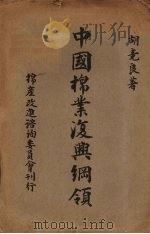 胡竟良著
中國棉業復興綱領
棉產改進諮詢委員會刊行